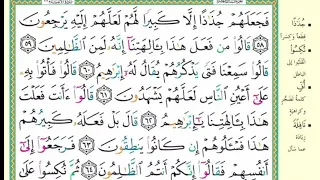 فَجَعَلَهُمْ جُذَٰذًا إِلَّا كَبِيرًا لَّهُمْ لَعَلَّهُمْ إِلَيْهِ يَرْجِعُونَ
٥٨ قَالُوا۟ مَن فَعَلَ هَٰذَا بِـَٔالِهَتِنَآ إِنَّهُۥ لَمِنَ ٱلظَّٰلِمِينَ ٥٩
قَالُوا۟ سَمِعْنَا فَتًى يَذْكُرُهُمْ يُقَالُ لَهُۥٓ إِبْرَٰهِيمُ ٦٠ قَالُوا۟ فَأْتُوا۟ بِهِۦ
عَلَىٰٓ أَعْيُنِ ٱلنَّاسِ لَعَلَّهُمْ يَشْهَدُونَ ٦١ قَالُوٓا۟ ءَأَنتَ فَعَلْتَ
هَٰذَا بِـَٔالِهَتِنَا يَٰٓإِبْرَٰهِيمُ ٦٢ قَالَ بَلْ فَعَلَهُۥ كَبِيرُهُمْ
هَٰذَا فَسْـَٔلُوهُمْ إِن كَانُوا۟ يَنطِقُونَ ٦٣ فَرَجَعُوٓا۟ إِلَىٰٓ
أَنفُسِهِمْ فَقَالُوٓا۟ إِنَّكُمْ أَنتُمُ ٱلظَّٰلِمُونَ ٦٤ ثُمَّ نُكِسُوا۟ عَلَىٰ
جُذَٰذًا
قطعًا وكسرًا
نُكِسُوا۟
نَافِلَةً
زيادة
عما سأل